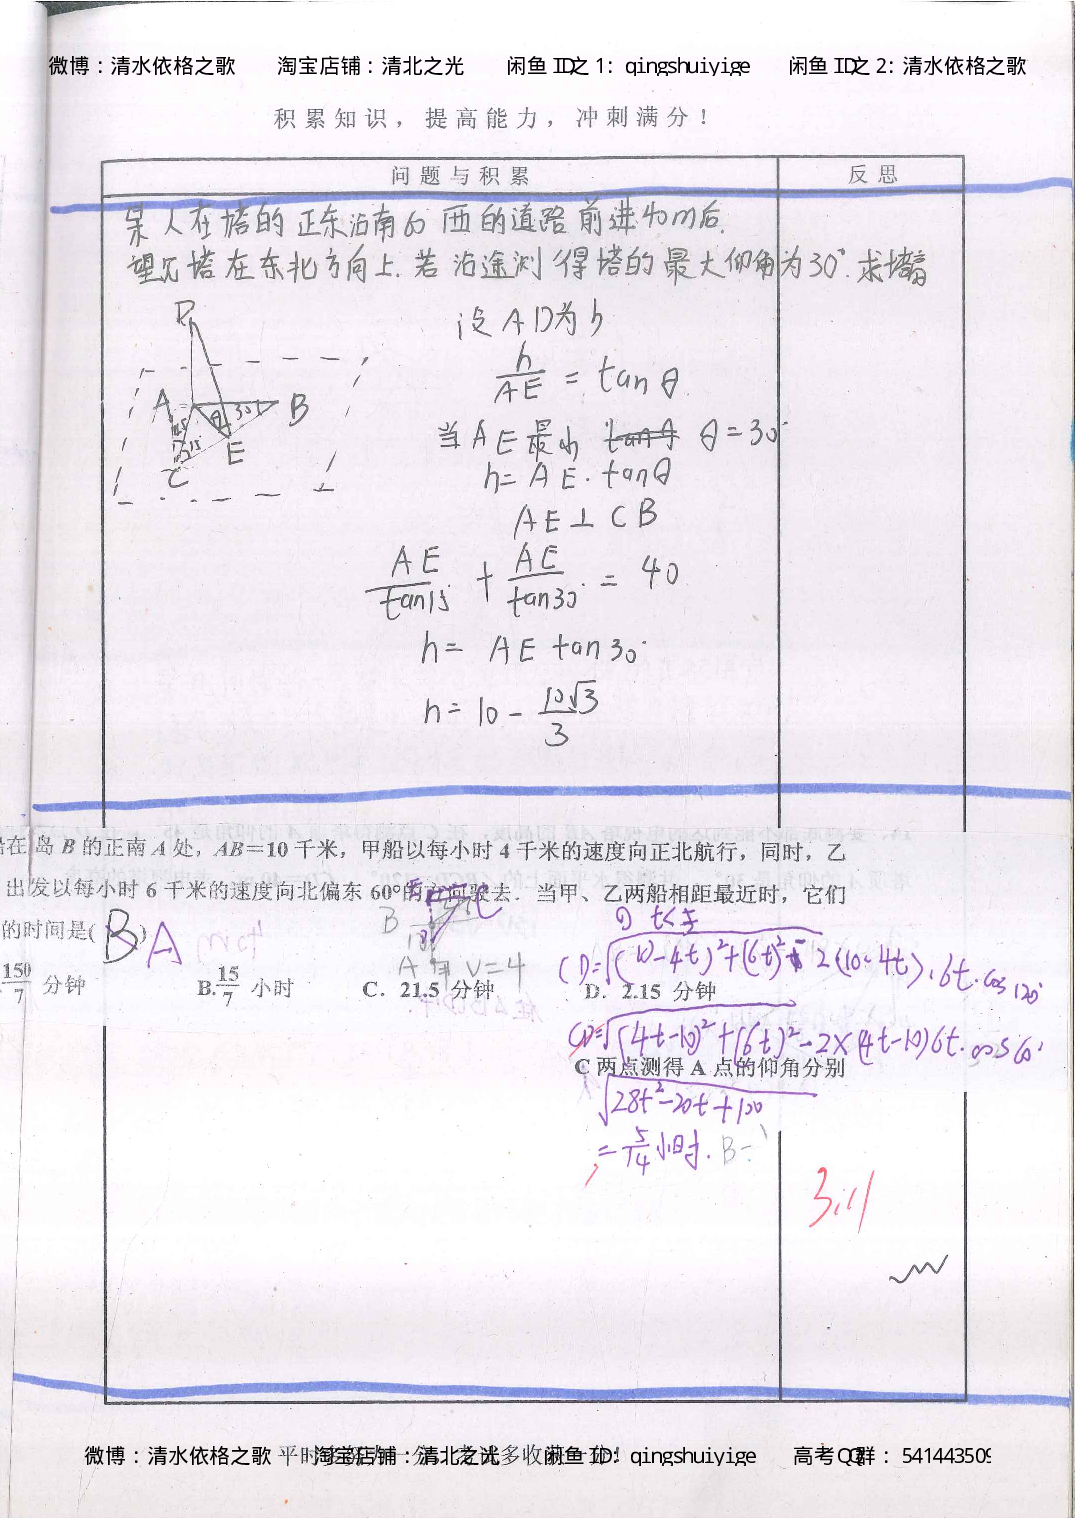 微博：清水依格之歌 淘宝店铺：清北之光 闲鱼 ID之 1: qingshuiyige 闲鱼 ID之 2: 清水依格之歌
积累知识，提高能力，冲刺满分！
问题与积累 反思
某人在塔的正东沿南60°西的道路前进40m后，
望见塔在东北方向上.若沿途测得塔的最大仰角为30°.求塔高
D
A B
E
C
设AD为h
h/AE = tanθ
当AE最小 θ=30°
h=AE·tanθ
AE⊥CB
AE/tan15° + AE/tan30° = 40
h= AE tan30°
h= 10 - 10√3/3
在岛 B 的正南 A 处，AB=10 千米，甲船以每小时 4 千米的速度向正北航行，同时，乙
出发以每小时 6 千米的速度向北偏东 60°的方向驶去．当甲、乙两船相距最近时，它们
的时间是( B )
A
150/7 分钟 B. 15/7 小时 C. 21.5 分钟 D. 2.15 分钟
B
A V=4
CD=√(10-4t)²+(6t)²-2(10-4t)·6t·cos120°
CD=√(4t-10)²+(6t)²-2×(4t-10)6t·cos60°
C 两点测得 A 点的仰角分别
√28t²-20t+100
=5/14小时.
3.11
微博：清水依格之歌 淘宝店铺：清北之光 闲鱼 ID: qingshuiyige 高考QQ群： 541443509